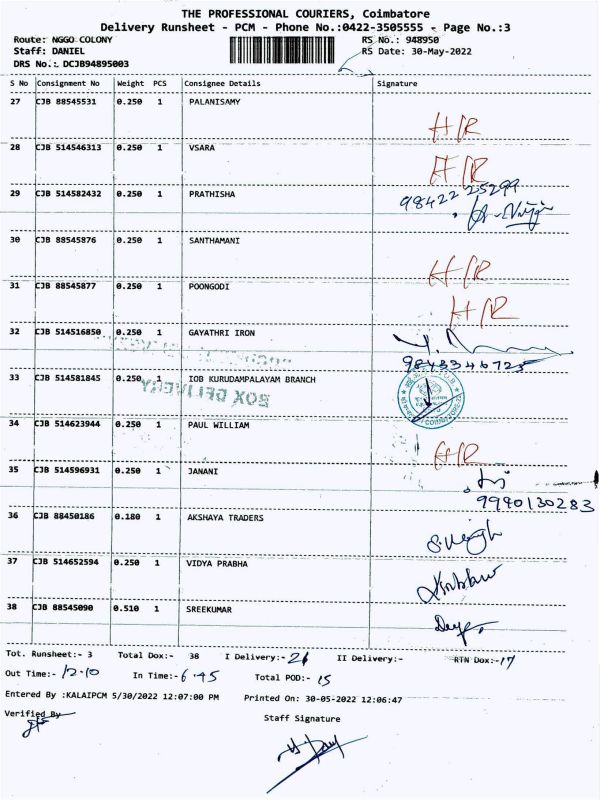 THE PROFESSIONAL COURIERS, Coimbatore
Delivery Runsheet - PCM - Phone No.:0422-3505555 - Page No.:3
Route: NGGO COLONY RS No.: 948950
Staff: DANIEL RS Date: 30-May-2022
DRS No.: DCJB94895003
S No Consignment No Weight PCS Consignee Details Signature
27 CJB 88545531 0.250 1 PALANISAMY
H/R
28 CJB 514546313 0.250 1 VSARA
H/R
29 CJB 514582432 0.250 1 PRATHISHA 98422 25299
30 CJB 88545876 0.250 1 SANTHAMANI
H/R
31 CJB 88545877 0.250 1 POONGODI
H/R
32 CJB 514516850 0.250 1 GAYATHRI IRON
9843346725
33 CJB 514581845 0.250 1 IOB KURUDAMPALAYAM BRANCH
BOX DELIVERY
34 CJB 514623944 0.250 1 PAUL WILLIAM
H/R
35 CJB 514596931 0.250 1 JANANI
9940130283
36 CJB 88450186 0.180 1 AKSHAYA TRADERS
37 CJB 514652594 0.250 1 VIDYA PRABHA
38 CJB 88545090 0.510 1 SREEKUMAR
Tot. Runsheet:- 3 Total Dox:- 38 I Delivery:- 21 II Delivery:- RTN Dox:- 17
Out Time:- 12.10 In Time:- 6.45 Total POD:- 15
Entered By :KALAIPCM 5/30/2022 12:07:00 PM Printed On: 30-05-2022 12:06:47
Verified By
Staff Signature